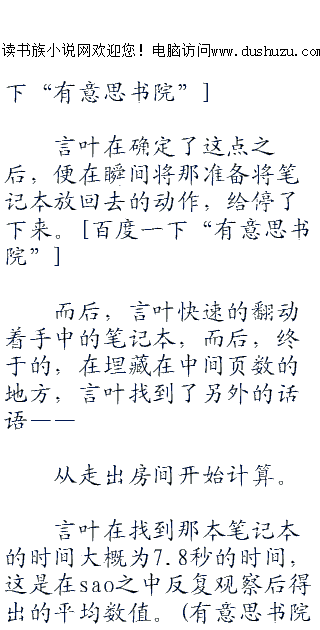 读书族小说网欢迎您！电脑访问www.dushuzu.com
下“有意思书院”]
言叶在确定了这点之
后，便在瞬间将那准备将笔
记本放回去的动作，给停了
下来。[百度一下“有意思书
院”]
而后，言叶快速的翻动
着手中的笔记本，而后，终
于的，在埋藏在中间页数的
地方，言叶找到了另外的话
语——
从走出房间开始计算。
言叶在找到那本笔记本
的时间大概为7.8秒的时间，
这是在sao之中反复观察后得
出的平均数值。(有意思书院